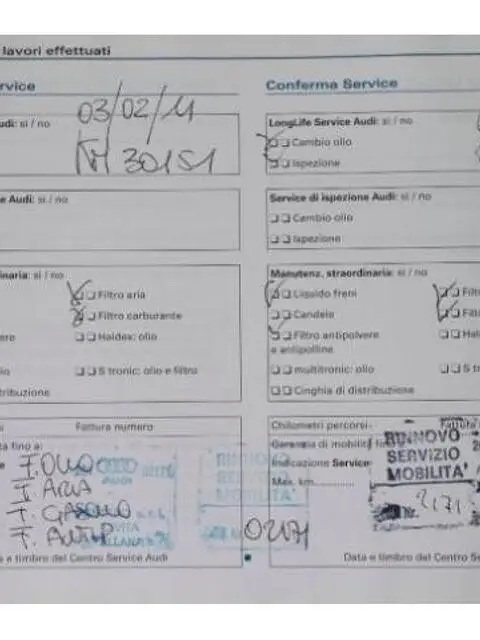 lavori effettuati
rvice
udi: si / no
03/02/11
KM 30151
e Audi: si / no
inaria: si / no
Filtro aria
Filtro carburante
Haldex: olio
S tronic: olio e filtro
tribuzione
Fattura numero
ta fino a:
F. OLIO
F. ARIA
F. GASOLIO
F. ANTIP
AUDI
RINNOVO
SERVIZIO
MOBILITA'
a e timbro del Centro Service Audi
Conferma Service
LongLife Service Audi: si / no
Cambio olio
Ispezione
Service di ispezione Audi: si / no
Cambio olio
Ispezione
Manutenz. straordinaria: si / no
Liquido freni
Candele
Filtro antipolvere
e antipolline
multitronic: olio
Cinghia di distribuzione
Filt
Filt
Ha
S t
Chilometri percorsi
Fattura
Garanzia di mobilità fino
Indicazione Service
Max. km
RINNOVO
SERVIZIO
MOBILITA'
2171
Data e timbro del Centro Se